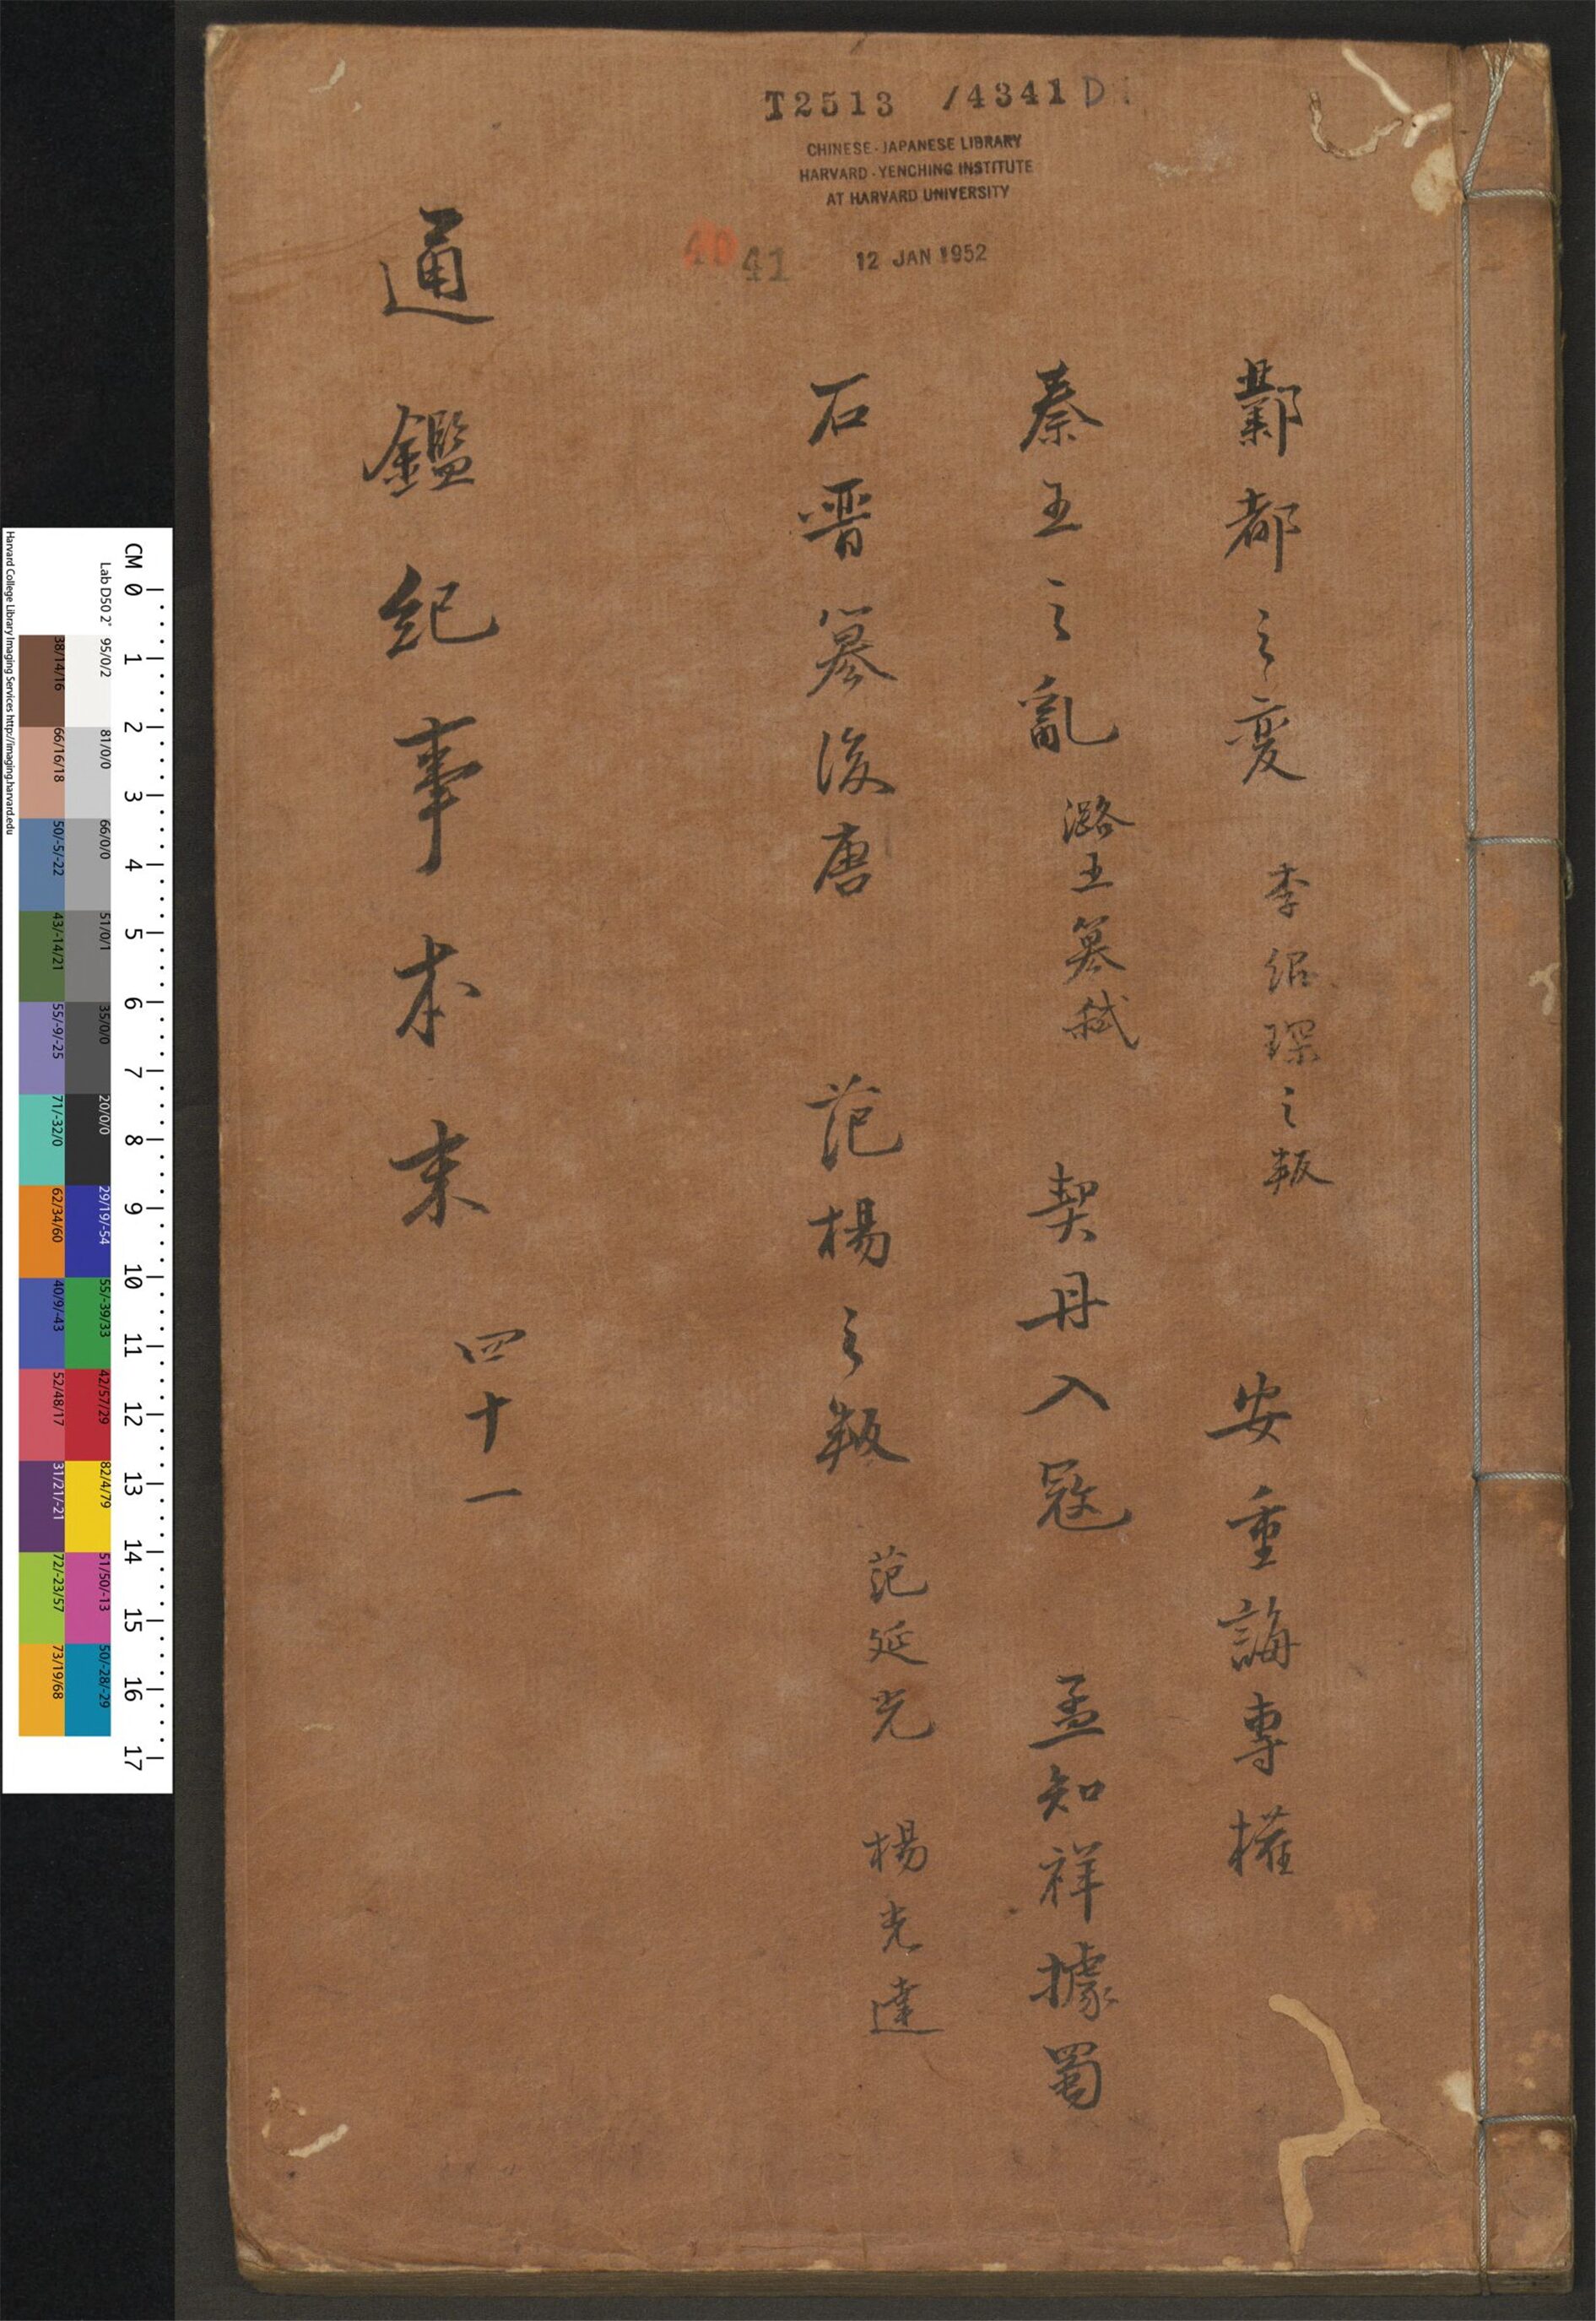 T2513 /4341 D
CHINESE-JAPANESE LIBRARY
HARVARD-YENCHING INSTITUTE
AT HARVARD UNIVERSITY
40 41
12 JAN 1952
鄴都之变 李紹琛之叛 安重誨專權
秦王之亂 潞王篡弑 契丹入寇 孟知祥據蜀
石晋篡後唐 范楊之叛 范延光 楊光達
通鑑紀事本末 四十一
CM 0 1 2 3 4 5 6 7 8 9 10 11 12 13 14 15 16 17
Lab D50 2° 95/0/2 81/0/0 66/0/0 51/0/1 35/0/0 20/0/0 29/19/-54 55/-39/33 42/57/29 82/4/79 51/50/-13 50/-28/-29
38/14/16 66/16/18 50/-5/-22 43/-14/21 55/-9/-25 71/-32/0 62/34/60 40/9/-43 52/48/17 31/21/-21 72/-23/57 73/19/68
Harvard College Library Imaging Services http://imaging.harvard.edu